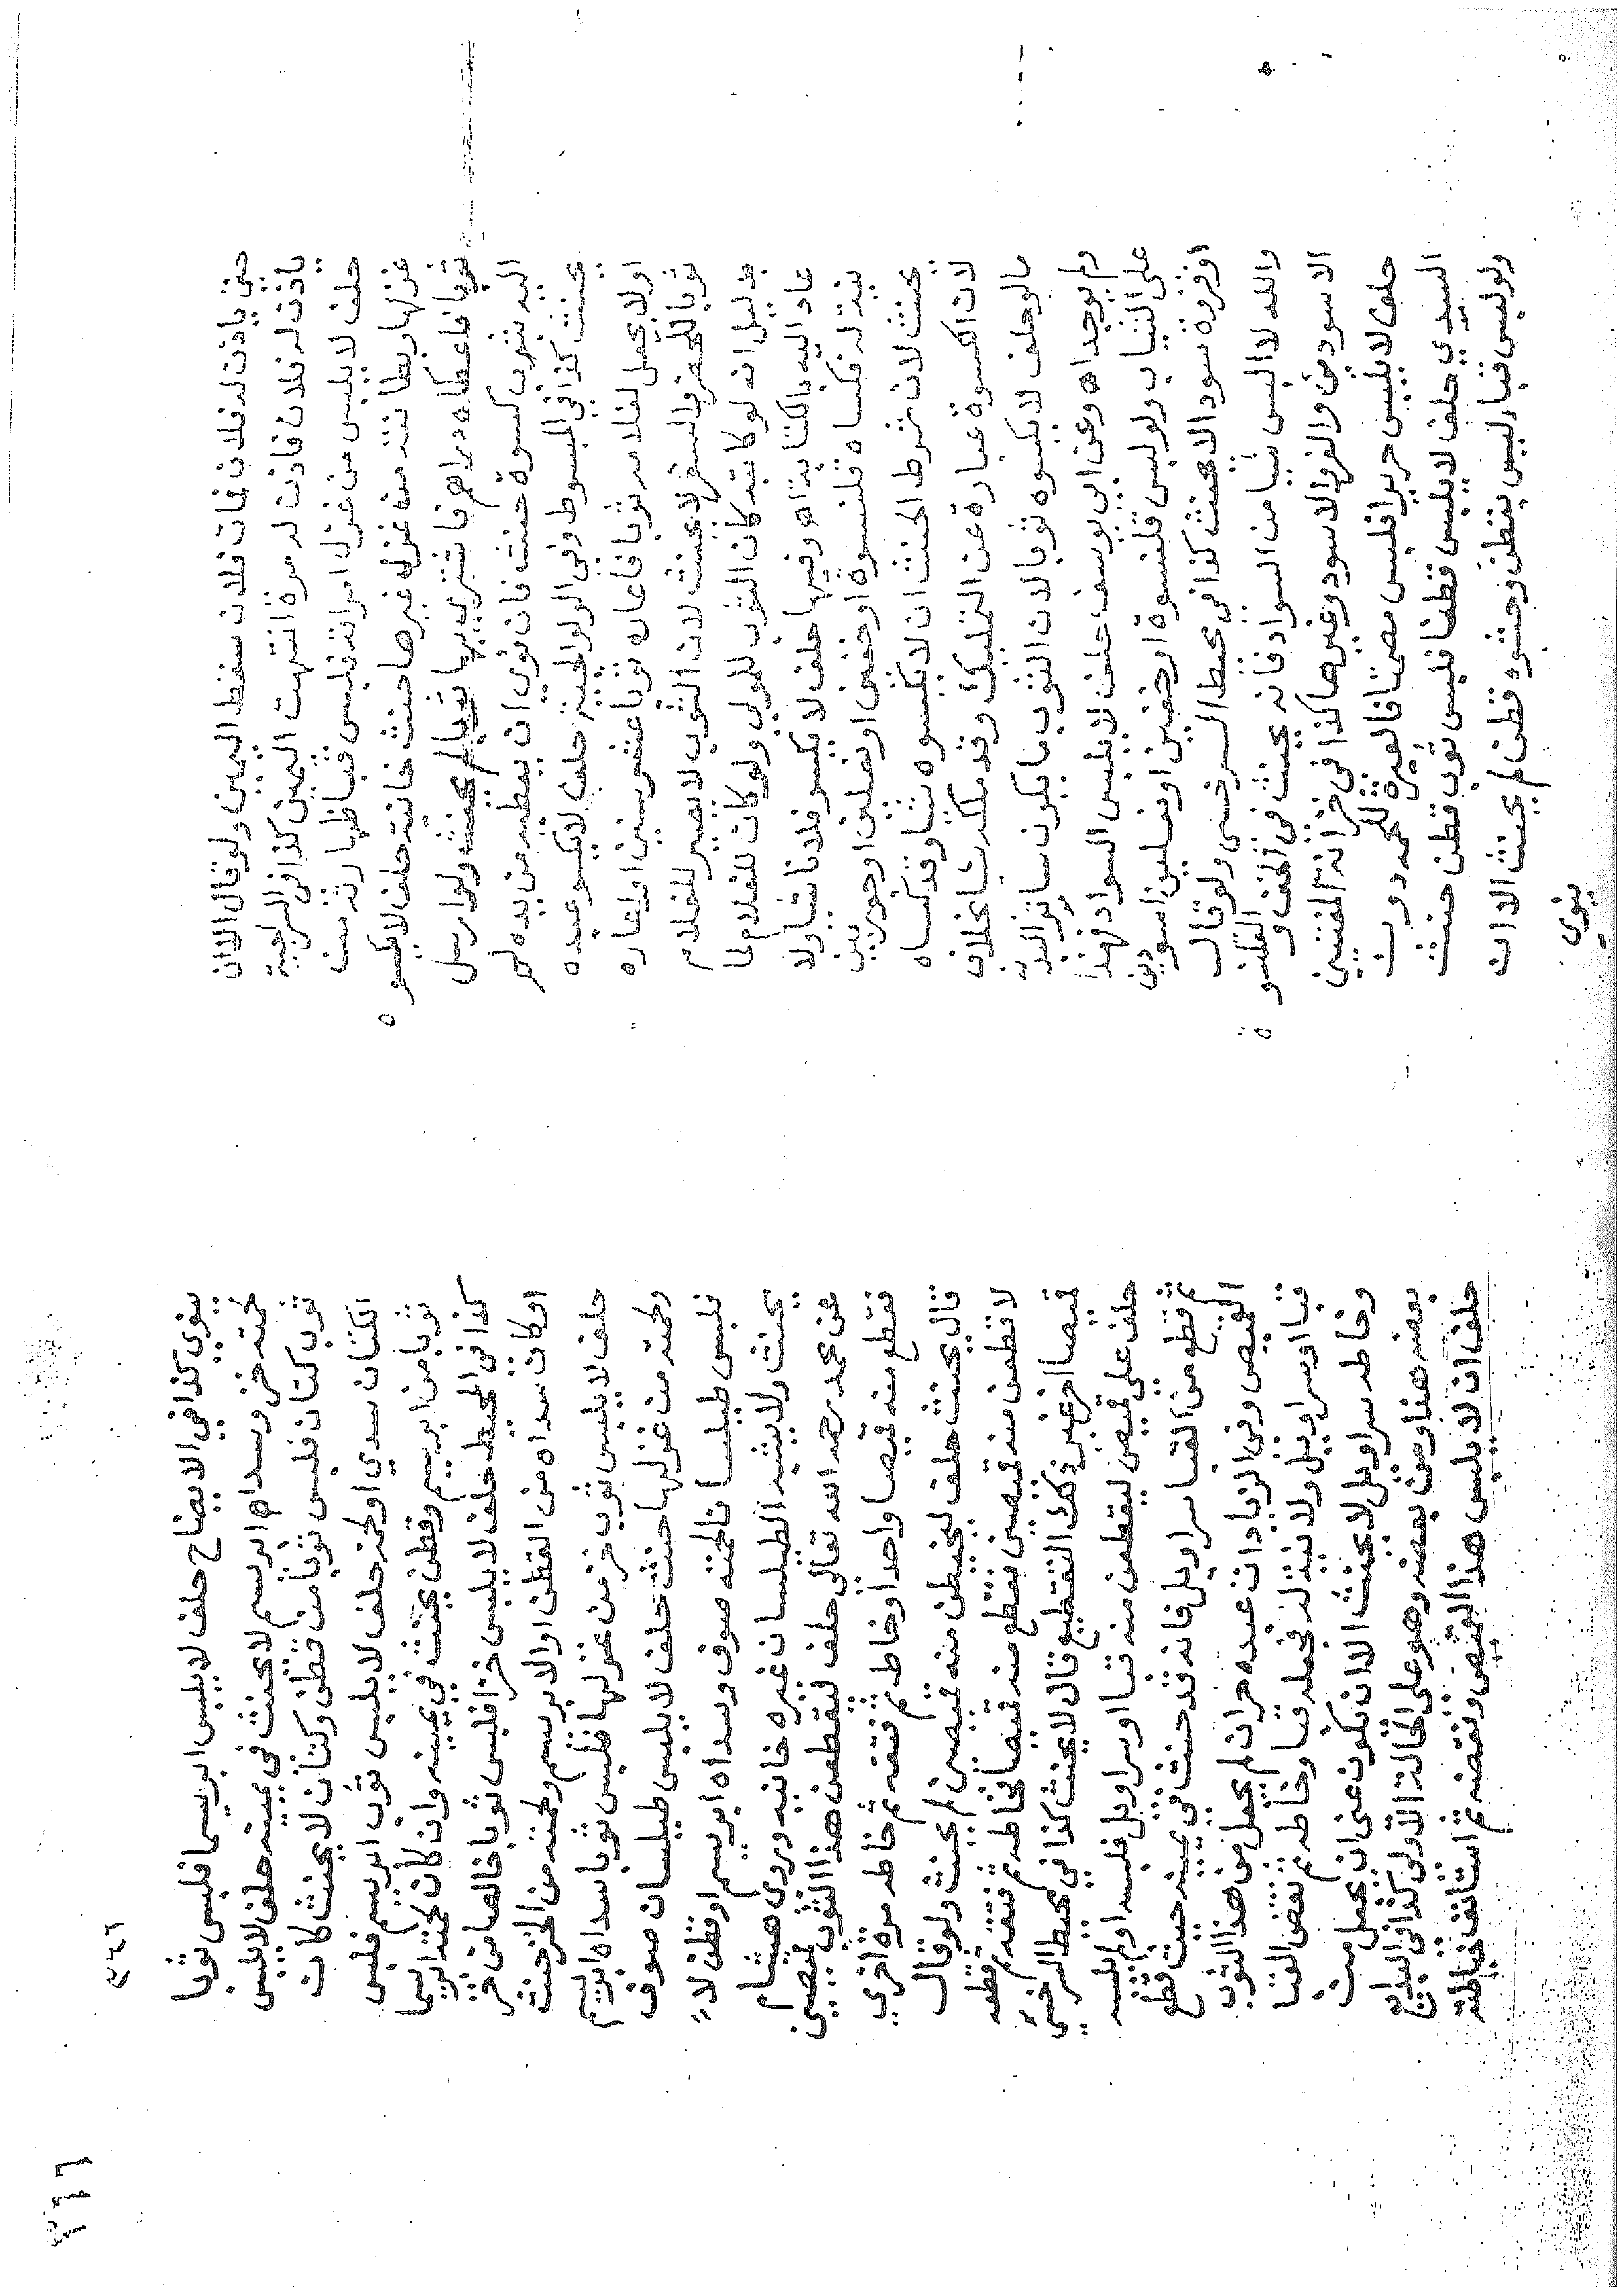 حتى يأذن له فلان فمات فلان سقط اليمين ولو قال الا ان
ياذن له فلان فاذن له مرة انتهت اليمين كذا في السراجية
حلف لا يلبس من غزل امراته فلبس قبا ظهارته من
غزلها وبطانته من غزل غيرها حنث خانيه حلف لا يكسوه
ثوبا فاعطاه دراهم فاشترى بها ثوبا لم يحنث ولو ارسل
اليه بثوب كسوة حنث فان نوى ان يعطيه من يده لم
يحنث كذا في المبسوط وفي الولوالجيه حلف لا يكسو عبده
اولا يجعل لغلامه ثوبا فاعاره ثوبا عشر سنين او اعاره
ثوبا للحضر والسفر لا يحنث لان الثوب لا يصير للغلام
بدليل انه لو كاتبه كان الثوب للمولى ولو كان للغلام لما
عاد اليه بالكتابة اه وفيها حلف لا يكسو فلانا شيأ ولا
نية له فكساه قلنسوة او خفين او نعلين او جوربين
يحنث لان شرط الحنث ان لا يكسوه شيأ وقد كساه
لان الكسوة عبارة عن التمليك وقد ملكه شيأ بخلاف
ما لو حلف لا يكسوه ثوبا لان الثوب ما يكون ساتر البدن
ولم يوجد اه وعن ابي يوسف حلف لا يلبس السواد فهذا
على الثياب ولو لبس قلنسوة او خفين او نعلين اسودين
او فروة سودا لا يحنث كذا في محيط السرخسي ولو قال
والله لا البس شيأ من السواد فانه يحنث في الخف والقلنسوة
الاسودين والفرو الاسود وغيرها كذا في خزانة المفتين
حلف لا يلبس حريرا فلبس مصمتا فالعبرة للحمه دون
السدي حلف لا يلبس قطنا فلبس ثوب قطن حنث
ولو لبس قبا ليس بقطن وحشوه قطن لم يحنث الا ان
ينوي
٤٦٦
ينوي كذا في الايضاح حلف لا يلبس ابريسما فلبس ثوبا
لحمته خز وسداه ابريسم لا يحنث في يمينه حلف لا يلبس
ثوب كتان فلبس ثوبا من قطن وكتان لا يحنث كان
الكتان سدي او لحمة حلف لا يلبس ثوب ابريسم فلبس
ثوبا من ابريسم وقطن يحنث في يمينه وان كان لحمته ابريسما
كذا في المحيط حلف لا يلبس خزا فلبس ثوبا خالصا من خز
او كان سداه من القطن او الابريسم ولحمته من الخز حنث
حلف لا يلبس ثوب خز من غزلها فلبس ثوبا سداه ابريسم
ولحمته من غزلها حنث حلف لا يلبس طيلسان صوف
فلبس طيلسانا لحمته صوف وسداه ابريسم او قطن لا
يحنث ولا يشبه الطيلسان غيره خانيه وروى هشام
عن محمد رحمه الله تعالى حلف ليقطعن هذا الثوب قميصين
فقطع منه قميصا واحدا وخاطه ثم فتقه ثم خاطه مرة اخري
قال يحنث حلف ليخيطن منه قميصين لم يحنث ولو قال
لا قطعن منه قميصين فقطع منه قميصا فخاطه ثم فتقه ثم قطعه
قميصا اخر غير ذلك التقطيع قال لا يحنث كذا في محيط السرخسي
حلف على قميص ليقطعن منه قبا او سراويل فلبسه او لم يلبسه
ثم قطع من القبا سراويل فانه قد حنث في يمينه حيث قطع
القميص وفي الزيادات عبده حر ان لم يجعل من هذا الثوب
قبا او سراويل ولا نية له فجعله قبا وخاطه ثم نقض القبا
وخاطه سراويل لا يحنث الا ان يكون عنى ان يجعل من
بعضه هذا ومن بعضه وهو على الحالة الاولى كذا في البدايع
حلف ان لا يلبس هذا القميص ونقضه ثم استأنف خياطته
٤٦٦